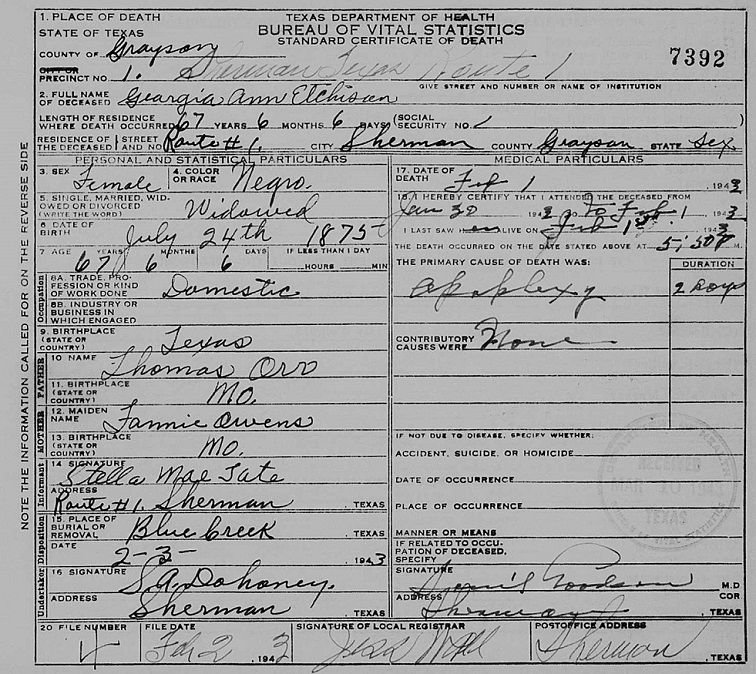 1. PLACE OF DEATH
STATE OF TEXAS
TEXAS DEPARTMENT OF HEALTH
BUREAU OF VITAL STATISTICS
STANDARD CERTIFICATE OF DEATH
COUNTY OF Grayson
7392
CITY OR
PRECINCT NO. 1. Sherman Texas Route 1
GIVE STREET AND NUMBER OR NAME OF INSTITUTION
2. FULL NAME
OF DECEASED Georgia Ann Etchison
LENGTH OF RESIDENCE
WHERE DEATH OCCURRED 67 YEARS 6 MONTHS 6 DAYS (SOCIAL SECURITY NO. )
RESIDENCE OF THE DECEASED STREET AND NO. Route #1. CITY Sherman COUNTY Grayson STATE Tex
PERSONAL AND STATISTICAL PARTICULARS
3. SEX Female 4. COLOR OR RACE Negro.
5. SINGLE, MARRIED, WIDOWED OR DIVORCED
(WRITE THE WORD) Widowed
6 DATE OF BIRTH July 24th 1875
7 AGE YEARS MONTHS DAYS IF LESS THAN 1 DAY
67 6 6 HOURS MIN
Occupation
8A. TRADE, PROFESSION OR KIND OF WORK DONE Domestic
8B. INDUSTRY OR BUSINESS IN WHICH ENGAGED
9. BIRTHPLACE (STATE OR COUNTRY) Texas
FATHER
10 NAME Thomas Orr
11. BIRTHPLACE (STATE OR COUNTRY) Mo.
MOTHER
12. MAIDEN NAME Fannie Owens
13. BIRTHPLACE (STATE OR COUNTRY) Mo.
Informant
14 SIGNATURE Stella Mae Tate
ADDRESS Route #1. Sherman , TEXAS
Disposition
15. PLACE OF BURIAL OR REMOVAL Blue Creek , TEXAS
DATE 2-3- 1943
Undertaker
16 SIGNATURE S.A. Dohoney.
ADDRESS Sherman , TEXAS
MEDICAL PARTICULARS
17. DATE OF DEATH Feb 1 1943
18. I HEREBY CERTIFY THAT I ATTENDED THE DECEASED FROM
Jan 30 1943 TO Feb. 1 1943
I LAST SAW ALIVE ON Feb 1st 1943
THE DEATH OCCURRED ON THE DATE STATED ABOVE AT 5:50P. M.
THE PRIMARY CAUSE OF DEATH WAS: DURATION
Apoplexy 2 Days
CONTRIBUTORY CAUSES WERE None
IF NOT DUE TO DISEASE, SPECIFY WHETHER:
ACCIDENT, SUICIDE, OR HOMICIDE
DATE OF OCCURRENCE
PLACE OF OCCURRENCE
MANNER OR MEANS
IF RELATED TO OCCUPATION OF DECEASED, SPECIFY
SIGNATURE M.D
ADDRESS Sherman COR
, TEXAS
20 FILE NUMBER FILE DATE SIGNATURE OF LOCAL REGISTRAR POSTOFFICE ADDRESS
4 Feb 2 1943 Sherman , TEXAS
NOTE THE INFORMATION CALLED FOR ON THE REVERSE SIDE